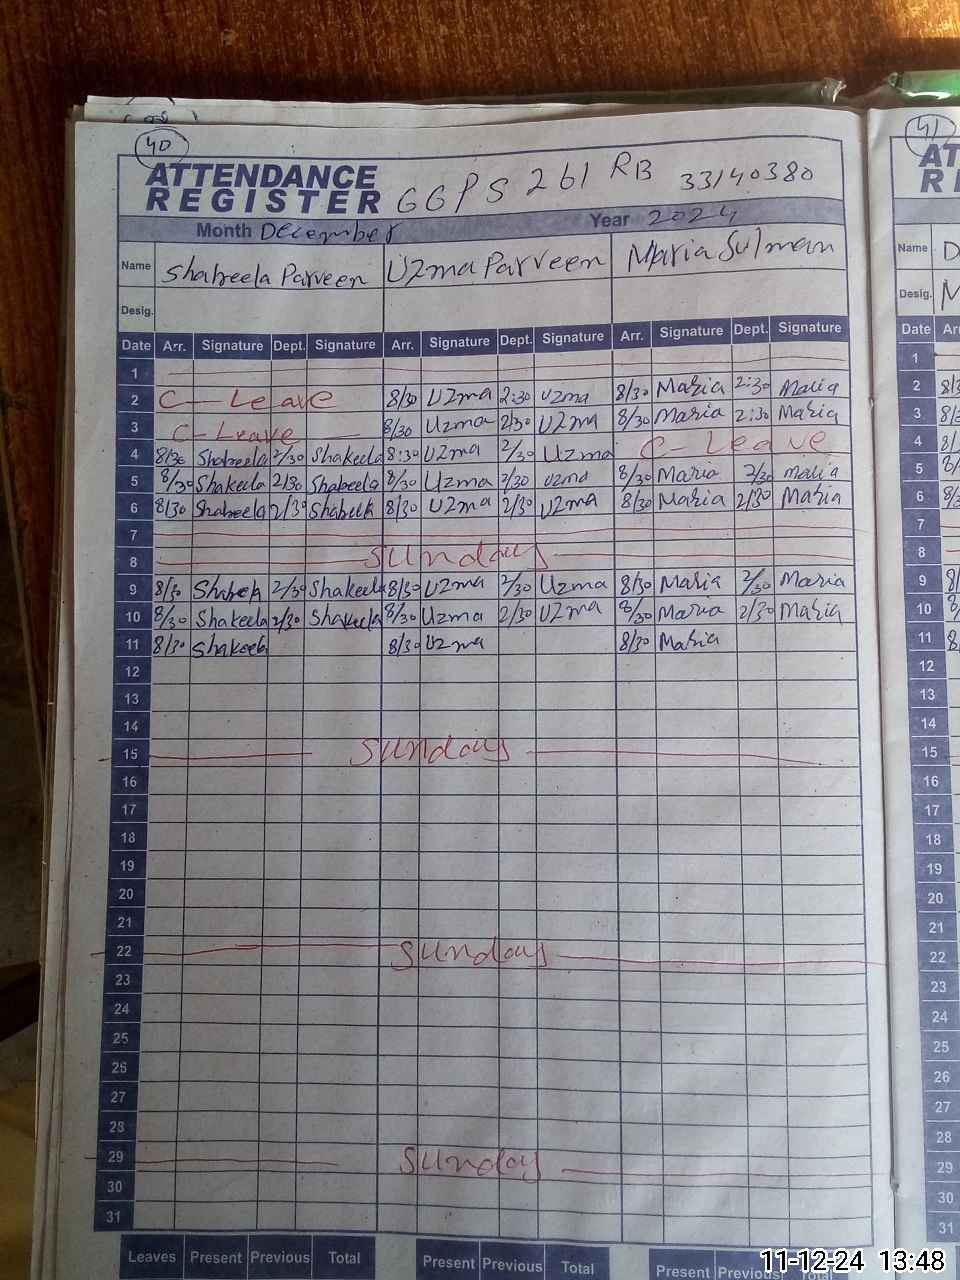 40
41
ATTENDANCE
REGISTER GGPS 261 RB 33140380
Month December Year 2024
Name Shakeela Parveen Uzma Parveen Maria Sulman
Desig.
Date Arr. Signature Dept. Signature Arr. Signature Dept. Signature Arr. Signature Dept. Signature
1
2 C-Leave 8/30 Uzma 2:30 Uzma 8/30 Maria 2:30 Maria
3 C-Leave 8/30 Uzma 2/30 Uzma 8/30 Maria 2:30 Maria
4 8/30 Shakeela 2/30 Shakeela 8:30 Uzma 2/30 Uzma C-Leave
5 8/30 Shakeela 2/30 Shakeela 8/30 Uzma 2/30 Uzma 8/30 Maria 2/30 Maria
6 8/30 Shakeela 2/30 Shakeela 8/30 Uzma 2/30 Uzma 8/30 Maria 2/30 Maria
7
8 Sunday
9 8/30 Shakeela 2/30 Shakeela 8/30 Uzma 2/30 Uzma 8/30 Maria 2/30 Maria
10 8/30 Shakeela 2/30 Shakeela 8/30 Uzma 2/30 Uzma 8/30 Maria 2/30 Maria
11 8/30 Shakeela 8/30 Uzma 8/30 Maria
12
13
14
15 Sunday
16
17
18
19
20
21
22 Sunday
23
24
25
26
27
28
29 Sunday
30
31
Leaves Present Previous Total Present Previous Total Present Previous Total
Name
Desig.
Date
1
2
3
4
5
6
7
8
9
10
11
12
13
14
15
16
17
18
19
20
21
22
23
24
25
26
27
28
29
30
31
11-12-24 13:48